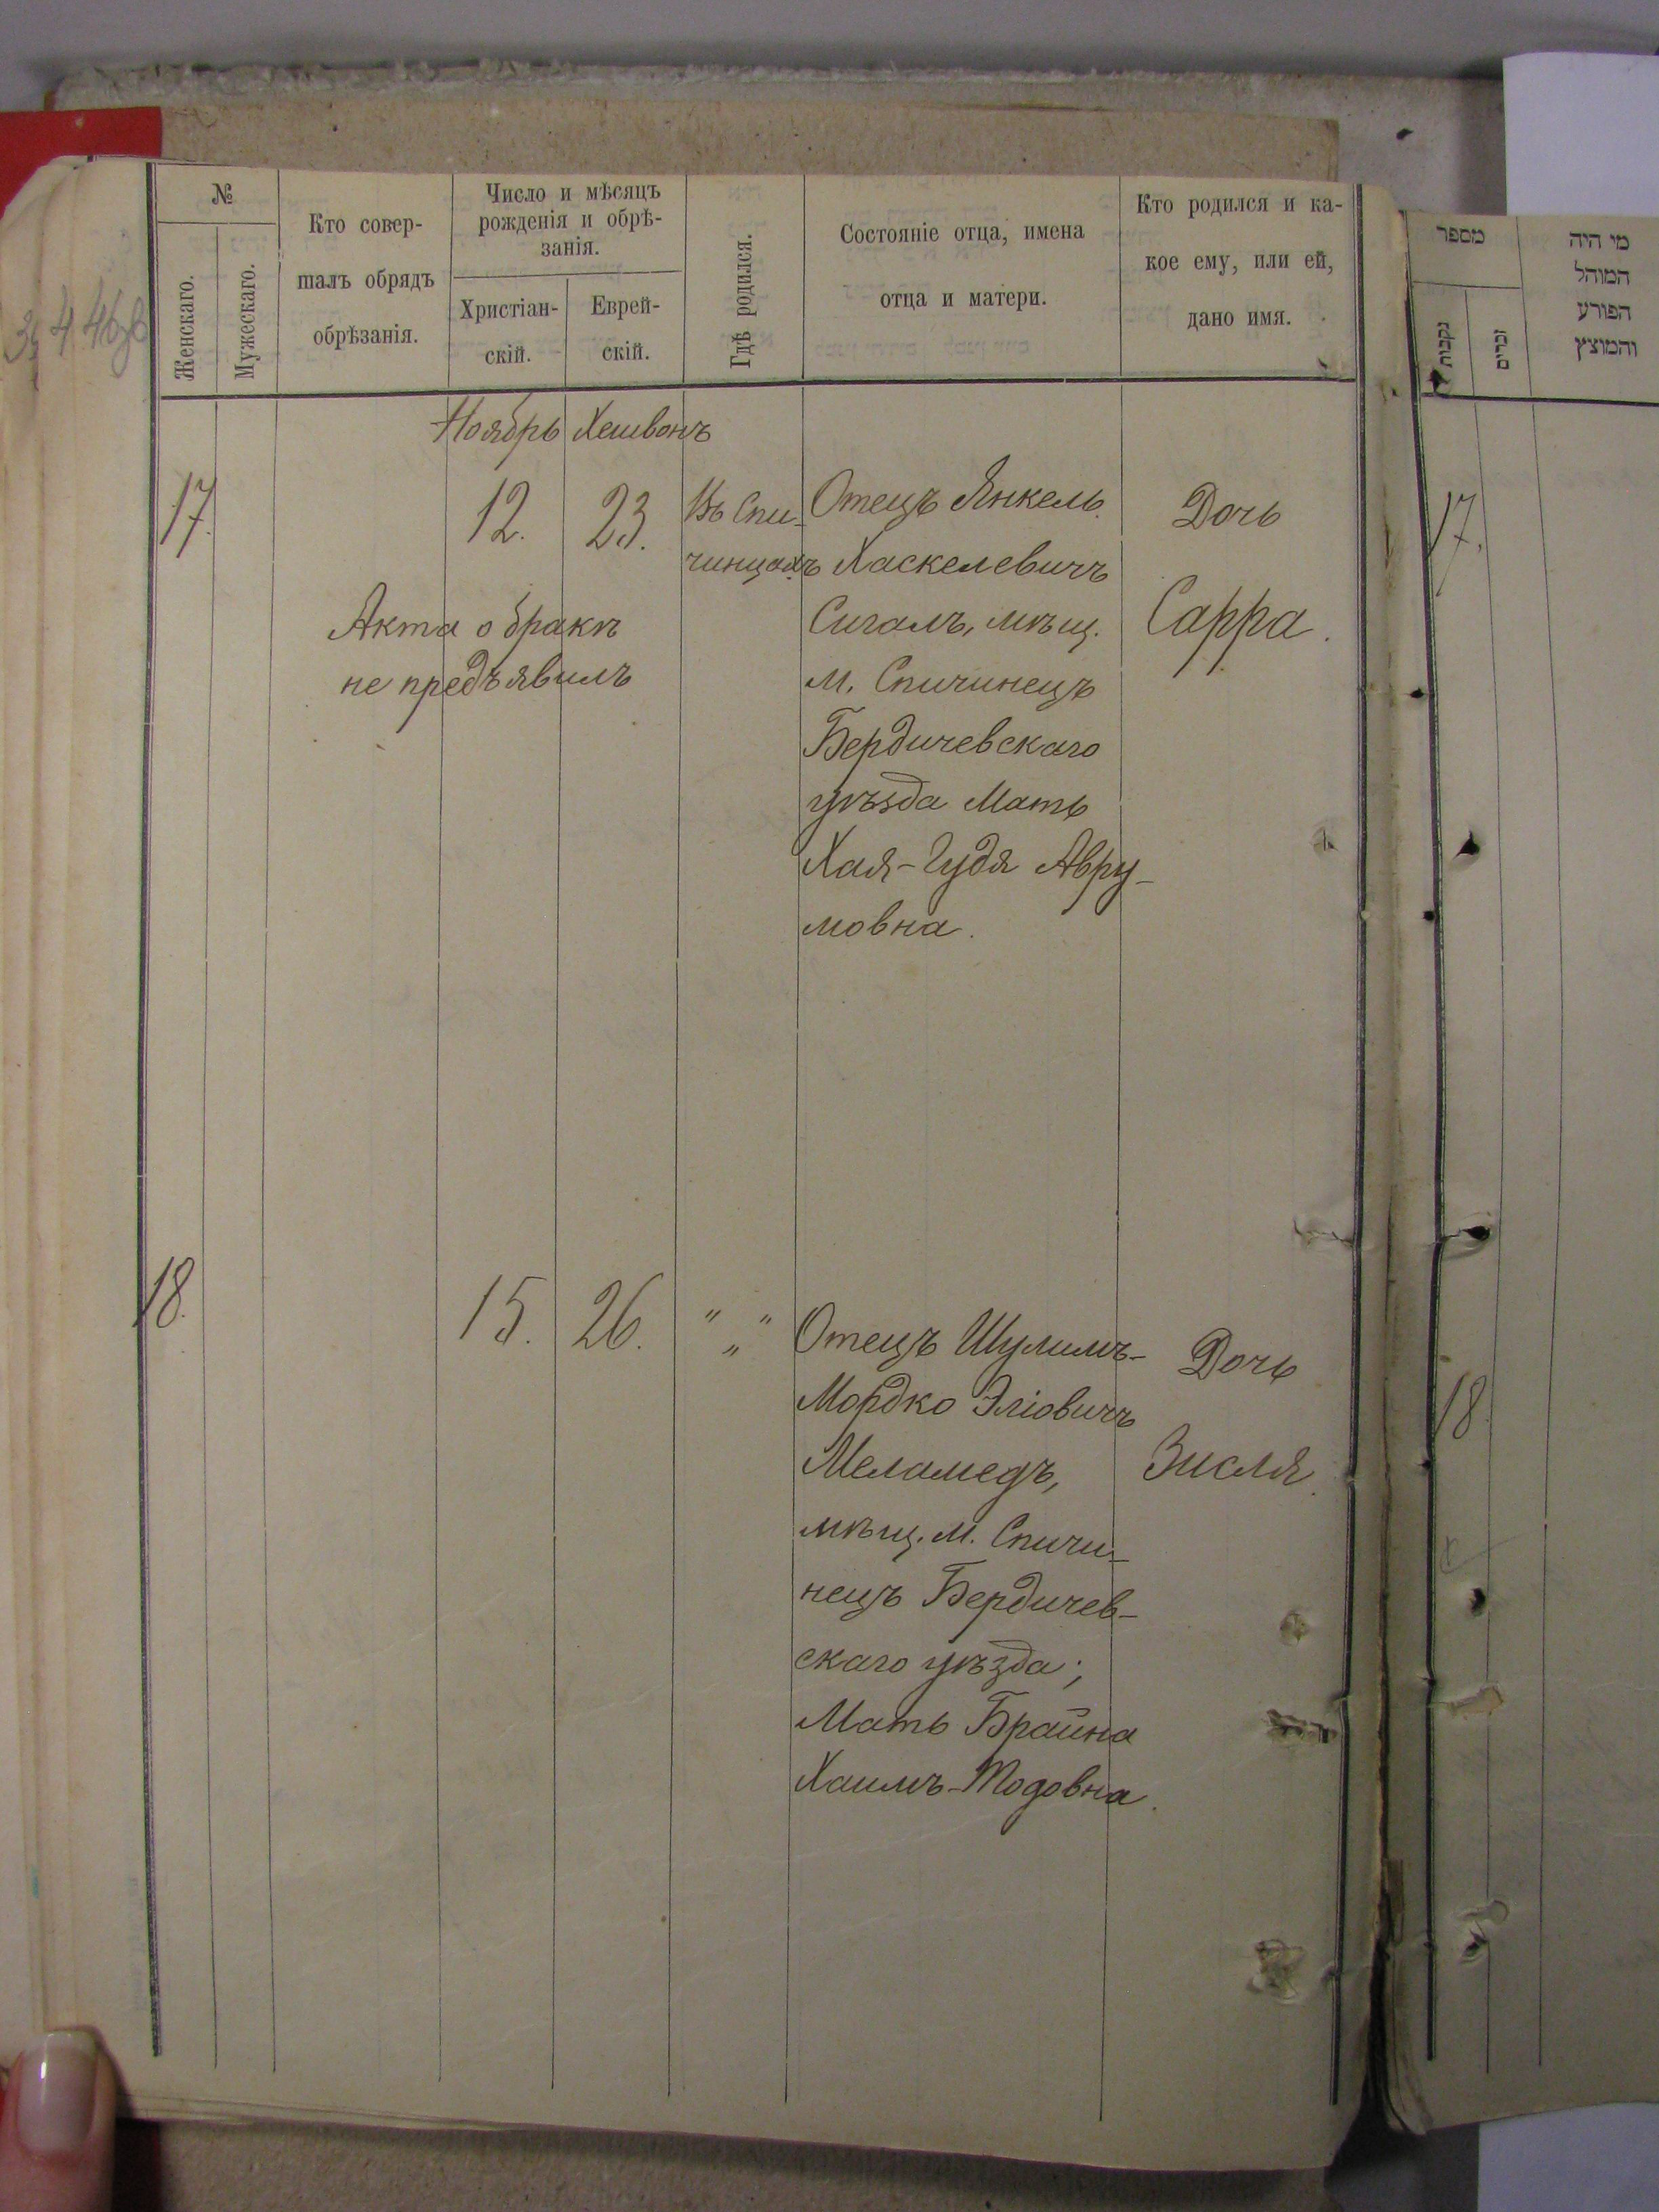 №
Женскаго.
Мужескаго.
Кто совер-
талъ обрядъ
обрѣзанія.
Число и мѣсяцъ
рожденія и обрѣ-
занія.
Христіан-
скій.
Еврей-
скій.
Гдѣ родился.
Состояніе отца, имена
отца и матери.
Кто родился и ка-
кое ему, или ей,
дано имя.
Ноябрь Хешвонъ
17.
12.
23.
Въ Спи-
чинцахъ
Акта о бракѣ
не предъявилъ
Отецъ Янкель
Хаскелевичъ
Сигалъ, мѣщ.
м. Спичинецъ
Бердичевскаго
уѣзда Мать
Хая-Гудя Авру-
мовна.
Дочь
Сарра.
18.
15.
26.
" „ "
Отецъ Шулимъ-
Мордко Эліовичъ
Меламедъ,
мѣщ. м. Спичи-
нецъ Бердичев-
скаго уѣзда;
Мать Брайна
Хаимъ-Тодовна.
Дочь
Зисля.
מספר
נקבות
זכרים
מי היה
המוהל
הפורע
והמוצץ
17.
18